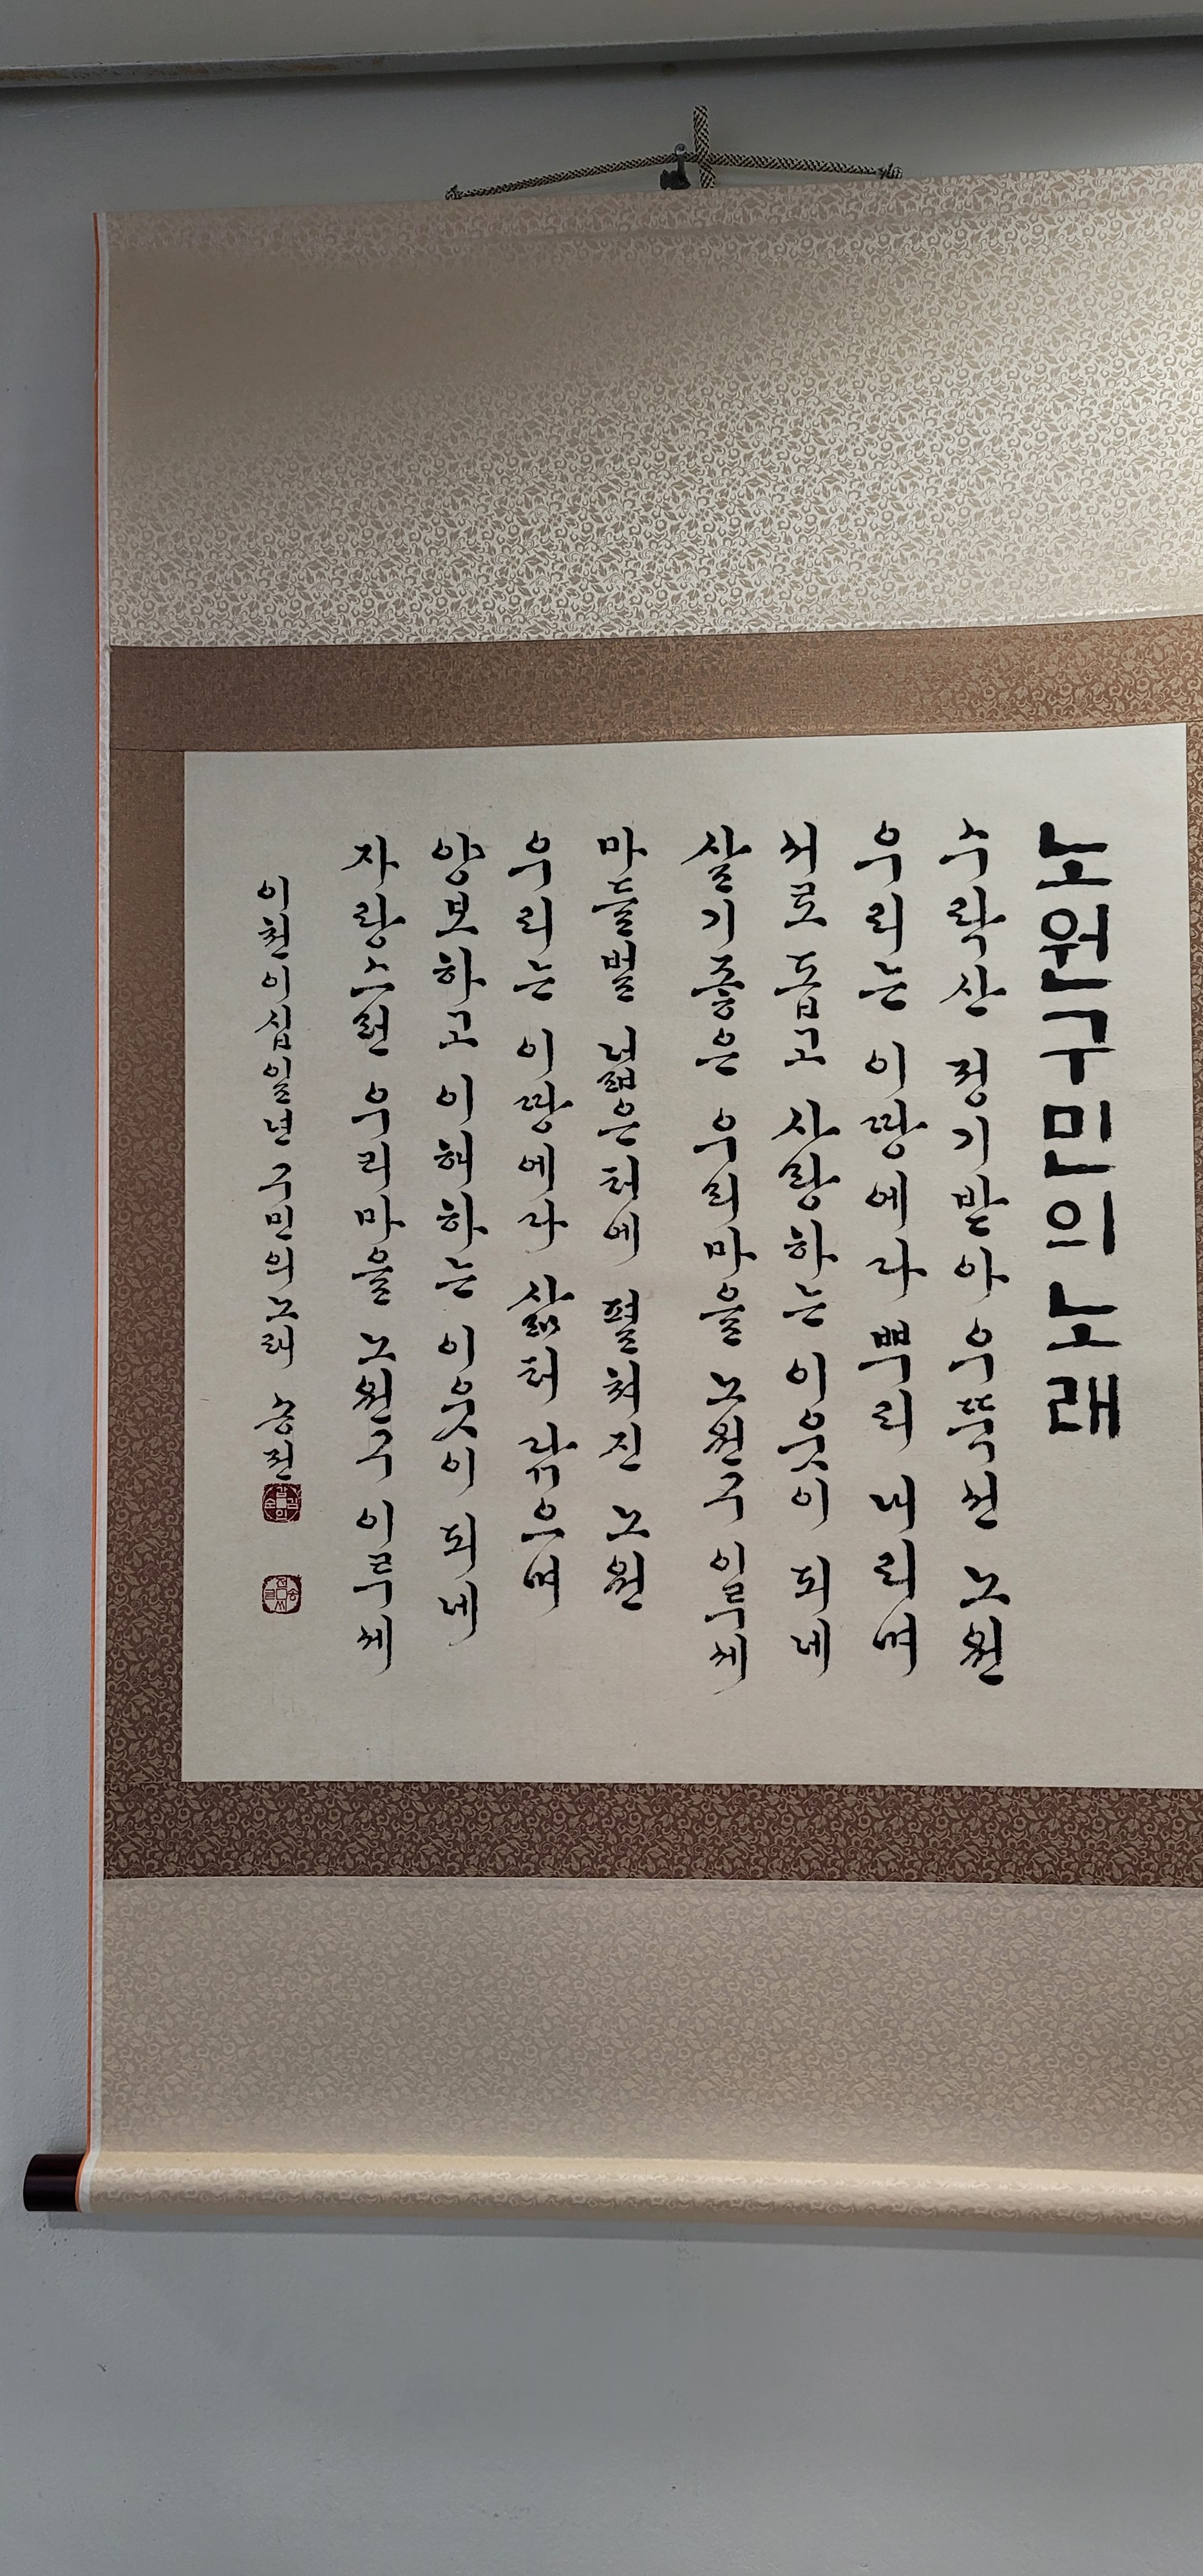 노원구민의 노래
수락산 정기받아 우뚝선 노원
우리는 이땅에다 뿌리 내리며
서로 돕고 사랑하는 이웃이 되네
살기좋은 우리마을 노원구 이루세
마들벌 넓은터에 펼쳐진 노원
우리는 이땅에다 삶터 닦으며
양보하고 이해하는 이웃이 되네
자랑스런 우리마을 노원구 이루세
이천이십일년 구민의 노래 송전